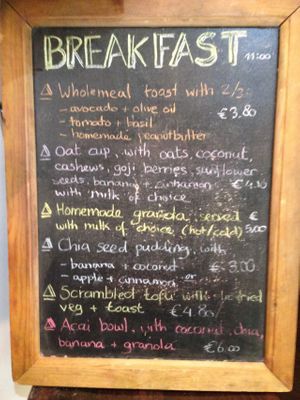 BREAKFAST 11:00
Wholemeal toast with 2/3:
- avocado + olive oil
- tomato + basil €3.80
- homemade peanutbutter
Oat cup, with oats, coconut,
cashews, goji berries, sunflower
seeds, banana + cinnamon €4.10
with milk of choice
Homemade granola, served €
with milk of choice (hot/cold) 5,00
Chia seed pudding, with
- banana + coconut €3.00
- apple + cinnamon or
Scrambled tofu with fried
veg + toast €4.80
Acai bowl, with coconut, chia,
banana + granola €6.00